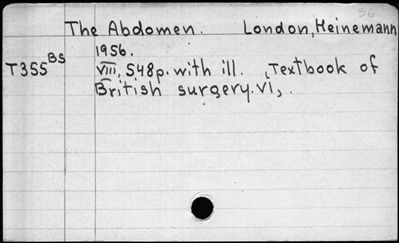 96
The Abdomen. London, Heinemann
1956.
T355 BS
VIII, 548p. with ill. (Textbook of
British surgery. VI).